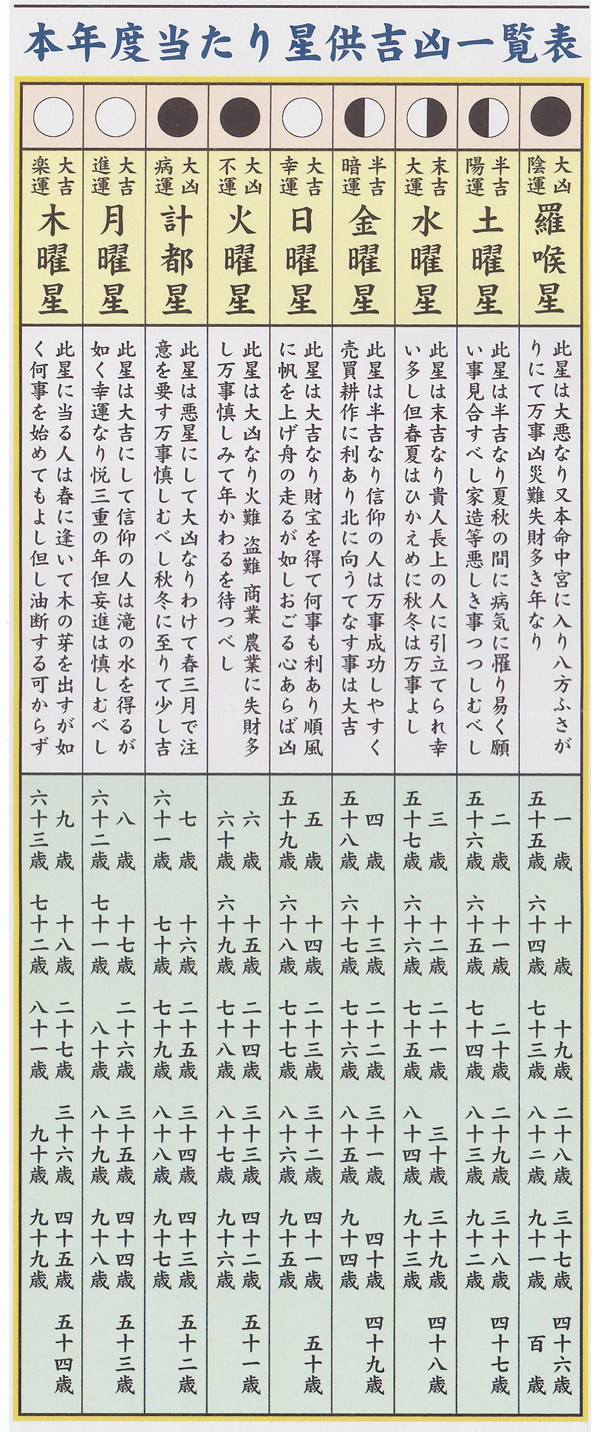 本年度当たり星供吉凶一覧表
大凶
陰運
羅喉星
此星は大悪なり又本命中宮に入り八方ふさが
りにて万事凶災難失財多き年なり
一歳 十歳 十九歳 二十八歳 三十七歳 四十六歳
五十五歳 六十四歳 七十三歳 八十二歳 九十一歳 百歳
半吉
陽運
土曜星
此星は半吉なり夏秋の間に病気に罹り易く願
い事見合すべし家造等悪しき事つつしむべし
二歳 十一歳 二十歳 二十九歳 三十八歳 四十七歳
五十六歳 六十五歳 七十四歳 八十三歳 九十二歳
末吉
大運
水曜星
此星は末吉なり貴人長上の人に引立てられ幸
い多し但春夏はひかえめに秋冬は万事よし
三歳 十二歳 二十一歳 三十歳 三十九歳 四十八歳
五十七歳 六十六歳 七十五歳 八十四歳 九十三歳
半吉
暗運
金曜星
此星は半吉なり信仰の人は万事成功しやすく
売買耕作に利あり北に向うてなす事は大吉
四歳 十三歳 二十二歳 三十一歳 四十歳 四十九歳
五十八歳 六十七歳 七十六歳 八十五歳 九十四歳
大吉
幸運
日曜星
此星は大吉なり財宝を得て何事も利あり順風
に帆を上げ舟の走るが如しおごる心あらば凶
五歳 十四歳 二十三歳 三十二歳 四十一歳 五十歳
五十九歳 六十八歳 七十七歳 八十六歳 九十五歳
大凶
不運
火曜星
此星は大凶なり火難 盗難 商業 農業に失財多
し万事慎しみて年かわるを待つべし
六歳 十五歳 二十四歳 三十三歳 四十二歳 五十一歳
六十歳 六十九歳 七十八歳 八十七歳 九十六歳
大凶
病運
計都星
此星は悪星にして大凶なりわけて春三月で注
意を要す万事慎しむべし秋冬に至りて少し吉
七歳 十六歳 二十五歳 三十四歳 四十三歳 五十二歳
六十一歳 七十歳 七十九歳 八十八歳 九十七歳
大吉
進運
月曜星
此星は大吉にして信仰の人は滝の水を得るが
如く幸運なり悦三重の年但妄進は慎しむべし
八歳 十七歳 二十六歳 三十五歳 四十四歳 五十三歳
六十二歳 七十一歳 八十歳 八十九歳 九十八歳
大吉
楽運
木曜星
此星に当る人は春に逢いて木の芽を出すが如
く何事を始めてもよし但し油断する可からず
九歳 十八歳 二十七歳 三十六歳 四十五歳 五十四歳
六十三歳 七十二歳 八十一歳 九十歳 九十九歳